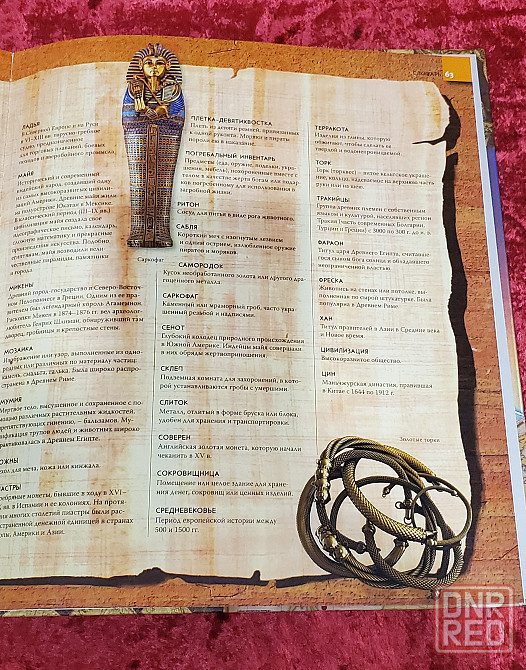 СЛОВАРЬ 63
ЛАДЬЯ
в Северной Европе и на Руси
в VI–XIII вв. парусно-гребное
судно, предназначенное
для торговых плаваний, боевых
походов и зверобойного промысла.
МАЙЯ
Исторический и современный
индейский народ, создавший одну
из самых высокоразвитых цивили-
заций Америки. Древние майя жили
на полуострове Юкатан в Мексике.
В классический период (III–IX вв.)
цивилизация майя создала свое
иероглифическое письмо, календарь,
сложную математику и прекрасные
произведения искусства. Подобно
египтянам, майя возводили вели-
чественные пирамиды, памятники
и города.
МИКЕНЫ
Древний город-государство и Северо-Восточ-
ном Пелопоннесе в Греции. Одним из ее пра-
вителем был легендарный король Агамемнон.
Раскопки Микен в 1874–1876 гг. вел археоло-
г-любитель Генрих Шлиман, обнаруживший там
дворец, гробницы и крепостные стены.
МОЗАИКА
Изображение или узор, выполненные из одно-
родных или различных по материалу частиц:
камень, смальта, галька. Была широко распро-
странена в Древнем Риме.
МУМИЯ
Мертвое тело, высушенное и сохраненное с по-
мощью различных растительных жидкостей,
препятствующих гниению, – бальзамов. Му-
мификация трупов людей и животных широко
практиковалась в Древнем Египте.
НОЖНЫ
чехол для меча, ножа или кинжала.
ПИАСТРЫ
серебряные монеты, бывшие в ходу в XVI–
вв. в Испании и ее колониях. На протя-
жении многих столетий пиастры были рас-
пространенной денежной единицей в странах
Европы, Америки и Азии.
Саркофаг
ПЛЕТКА-ДЕВЯТИХВОСТКА
Плеть из девяти ремней, привязанных
к одной рукояти. Моряки и пираты
пороли ею в наказание.
ПОГРЕБАЛЬНЫЙ ИНВЕНТАРЬ
Предметы (еда, оружие, поделки, укра-
шения, мебель), похороненные вместе с
телом в качестве жертв богам или подар-
ков погребенному для использования в
загробной жизни.
РИТОН
Сосуд для питья в виде рога животного.
САБЛЯ
Короткий меч с изогнутым лезвием
и одной острием, излюбленное оружие
пиратов и моряков.
САМОРОДОК
Кусок необработанного золота или другого дра-
гоценного металла.
САРКОФАГ
Каменный или мраморный гроб, часто укра-
шенный резьбой и надписями.
СЕНОТ
Глубокий колодец природного происхождения
в Южной Америке. Индейцы майя совершали
в них обряды жертвоприношения.
СКЛЕП
Подземная комната для захоронений, в кото-
рой устанавливаются гробы с умершими.
СЛИТОК
Металл, отлитый в форме бруска или блока,
удобен для хранения и транспортировки.
СОВЕРЕН
Английская золотая монета, которую начали
чеканить в XV в.
СОКРОВИЩНИЦА
Помещение или целое здание для хране-
ния денег, сокровищ или ценных изделий.
СРЕДНЕВЕКОВЬЕ
Период европейской истории между
500 и 1500 гг.
ТЕРРАКОТА
Изделия из глины, которую
обжигают, чтобы сделать ее
твердой и водонепроницаемой.
ТОРК
Торк (торквес) — витое кельтское украше-
ние, кольцо, надеваемое на верхнюю часть
руки или на шею.
ТРАКИЙЦЫ
Группа древних племен с собственными
языком и культурой, населявших регион
Тракия (часть современных Болгарии,
Турции и Греции) с 3000 по 300 г. до н. э.
ФАРАОН
Титул царя Древнего Египта, считавше-
гося сыном бога солнца и обладавшего
неограниченной властью.
ФРЕСКА
Живопись на стенах или потолке, вы-
полненная по сырой штукатурке. Была
популярна в Древнем Риме.
ХАН
Титул правителей в Азии в Средние века
и Новое время.
ЦИВИЛИЗАЦИЯ
Высокоразвитое общество.
ЦИН
Маньчжурская династия, правившая
в Китае с 1644 по 1912 г.
Золотые торки
DNR
RED